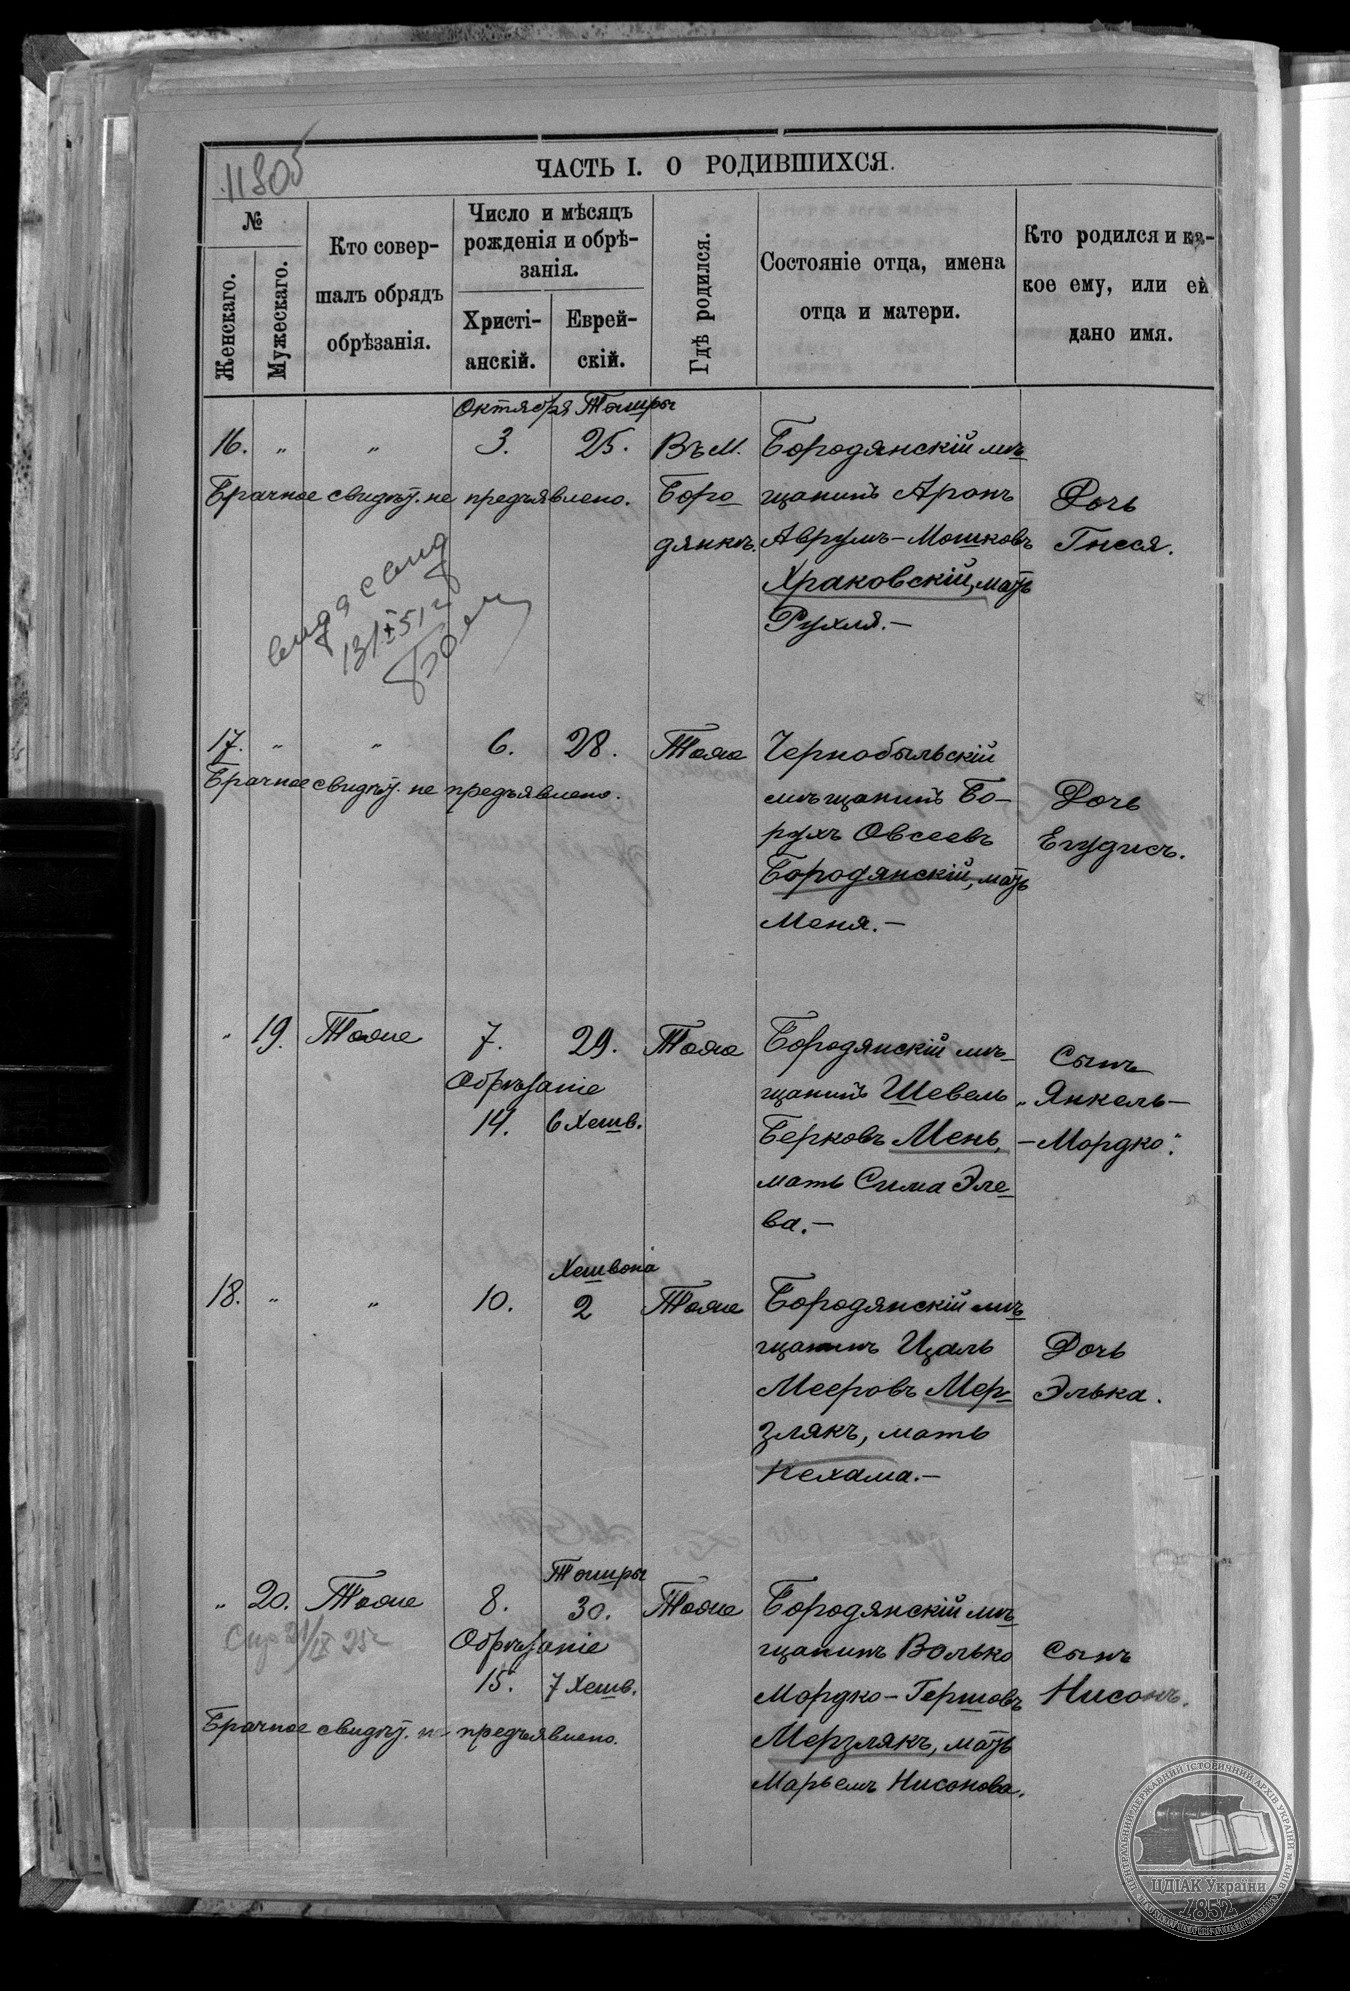 11905
ЧАСТЬ I. О РОДИВШИХСЯ.
№
Женскаго.
Мужескаго.
Кто совер-
шалъ обрядъ
обрѣзанія.
Число и мѣсяцъ
рожденія и обрѣ-
занія.
Христі-
анскій.
Еврей-
скій.
Гдѣ родился.
Состояніе отца, имена
отца и матери.
Кто родился и ка-
кое ему, или ей
дано имя.
Октября Тишры
16. „ „ 3. 25. Въ м. Бородянскій мѣ
Брачное свидѣт. не предъявлено. Боро
щанинъ Аронъ Дочь
дянкѣ. Аврумъ-Мошковъ Гнеся.
Храковскій, мать
Рухля.—
17. „ „ 6. 28. Тоже Чернобыльскій
Брачное свидѣт. не предъявлено.
мѣщанинъ Бо- Дочь
рухъ Овсеевъ Егудисъ.
Бородянскій, мать
Меня.—
„ 19. Тоже 7. 29. Тоже Бородянскій мѣ- Сынъ
Обрѣзаніе щанинъ Шевель „Янкель-
14. 6 Хешв. Берковъ Мень, -Мордко".
мать Сима Эле
ва.—
Хешвона
18. „ „ 10. 2 Тоже Бородянскій мѣ
щанинъ Цаль Дочь
Мееровъ Мер Элька.
злякъ, мать
Нехама.—
Тишры
„ 20. Тоже 8. 30. Тоже Бородянскій мѣ
Обрѣзаніе щанинъ Волько Сынъ
15. 7 Хешв. Мордко-Гершовъ Нисонъ.
Брачное свидѣт. не предъявлено. Мерзлякъ, мать
Марьемъ Нисонова.
ЦЕНТРАЛЬНИЙ ДЕРЖАВНИЙ ІСТОРИЧНИЙ АРХІВ УКРАЇНИ М. КИЇВ
ЦДІАК України
1852